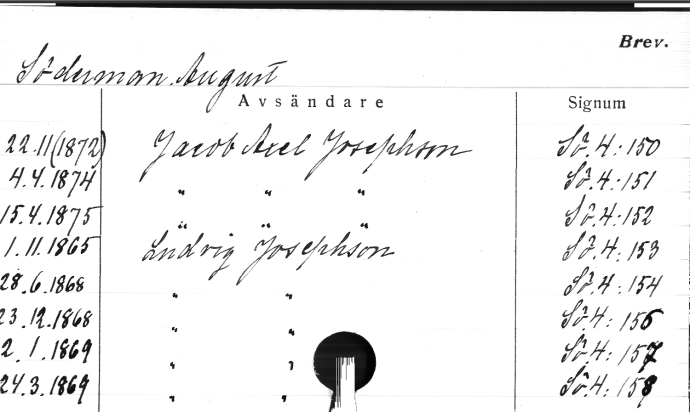 Brev.
Söderman. August
Avsändare Signum
22.11(1872) Jacob Axel Josephson Sö.4:150
4.4.1874 " " " Sö.4:151
15.4.1875 " " " Sö.4:152
1.11.1865 Ludvig Josephson Sö.4:153
28.6.1868 " " Sö.4:154
23.12.1868 " " Sö.4:156
2.1.1869 " " Sö.4:157
24.3.1869 " " Sö.4:158